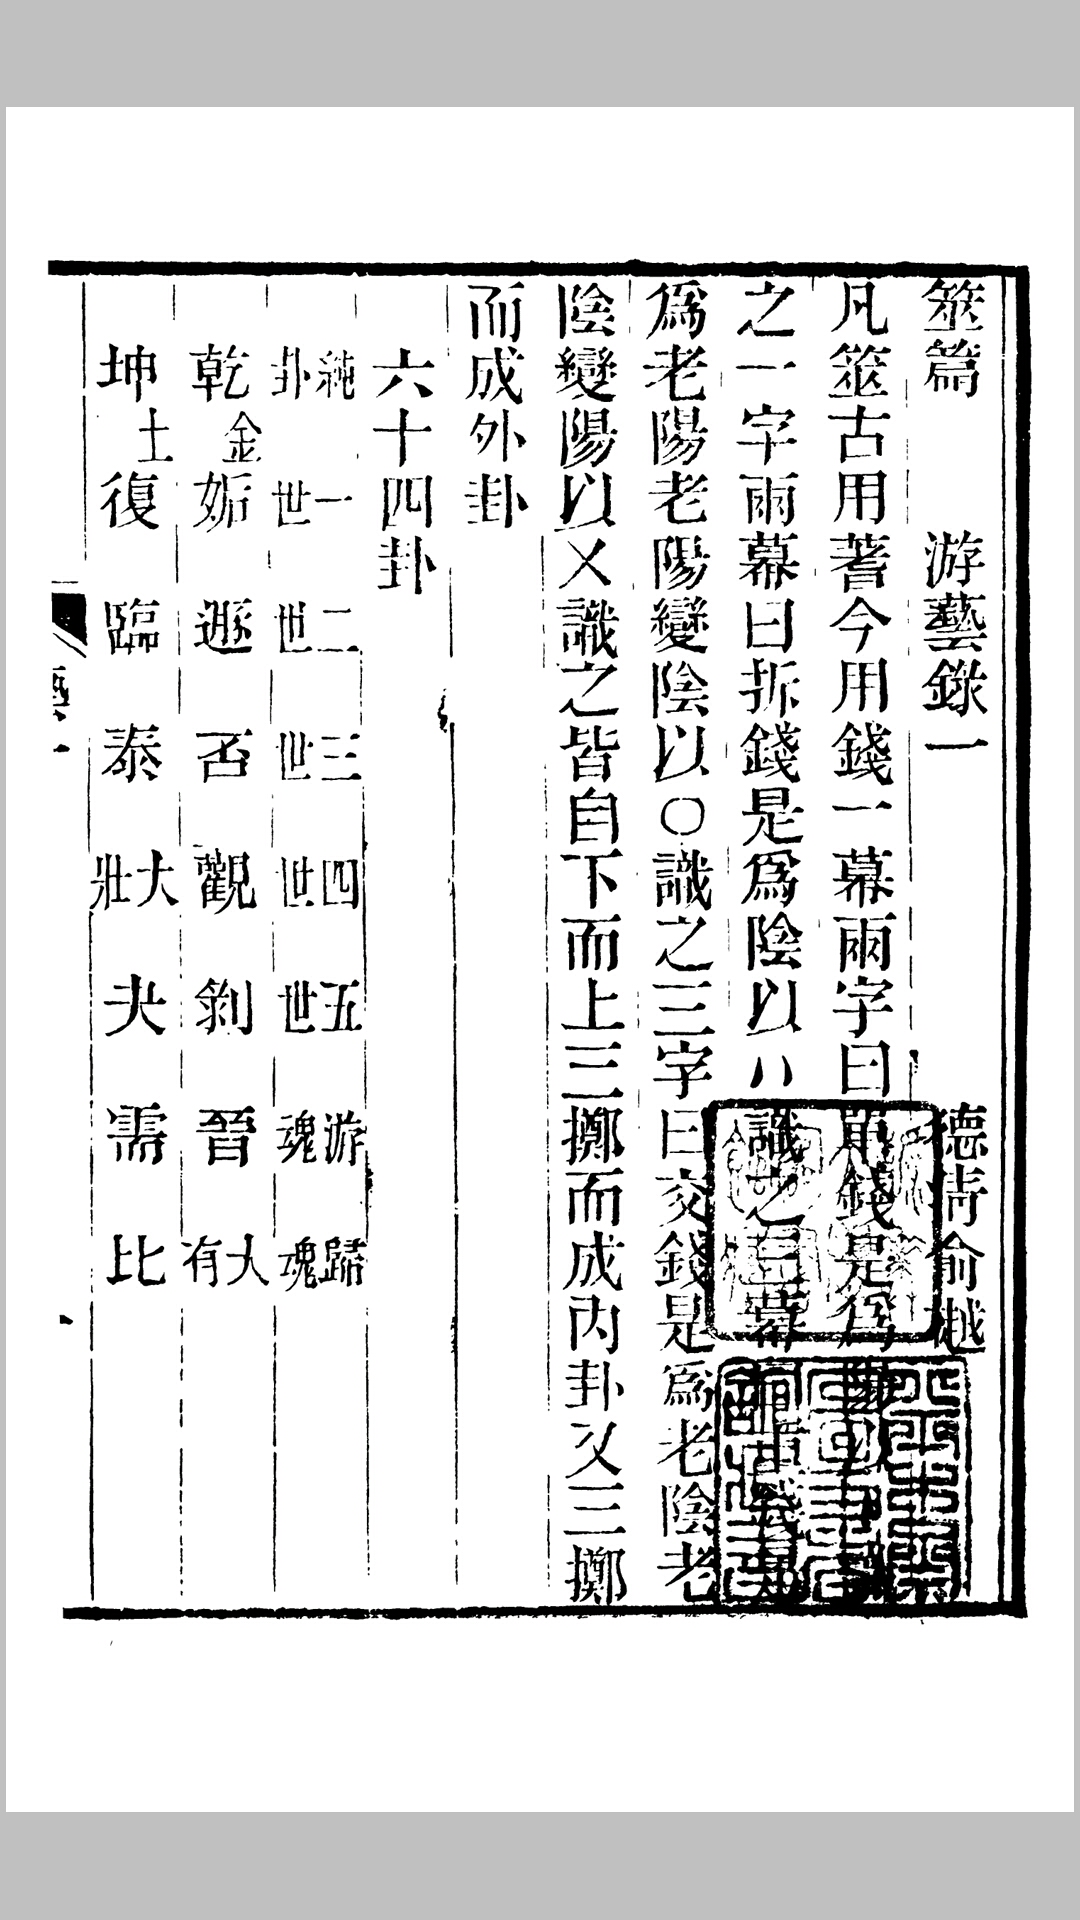 筮篇　游藝錄一　德淸俞樾
凡筮古用蓍今用錢一幕兩字曰單錢是爲陽以
之一字兩幕曰拆錢是爲陰以八識之三幕
爲老陽老陽變陰以〇識之三字曰交錢是爲老陰老
陰變陽以乂識之皆自下而上三擲而成內卦又三擲
而成外卦
六十四卦
純卦　一世　二世　三世　四世　五世　游魂　歸魂
乾金　姤　遯　否　觀　剝　晉　大有
坤土　復　臨　泰　大壯　夬　需　比
藝一